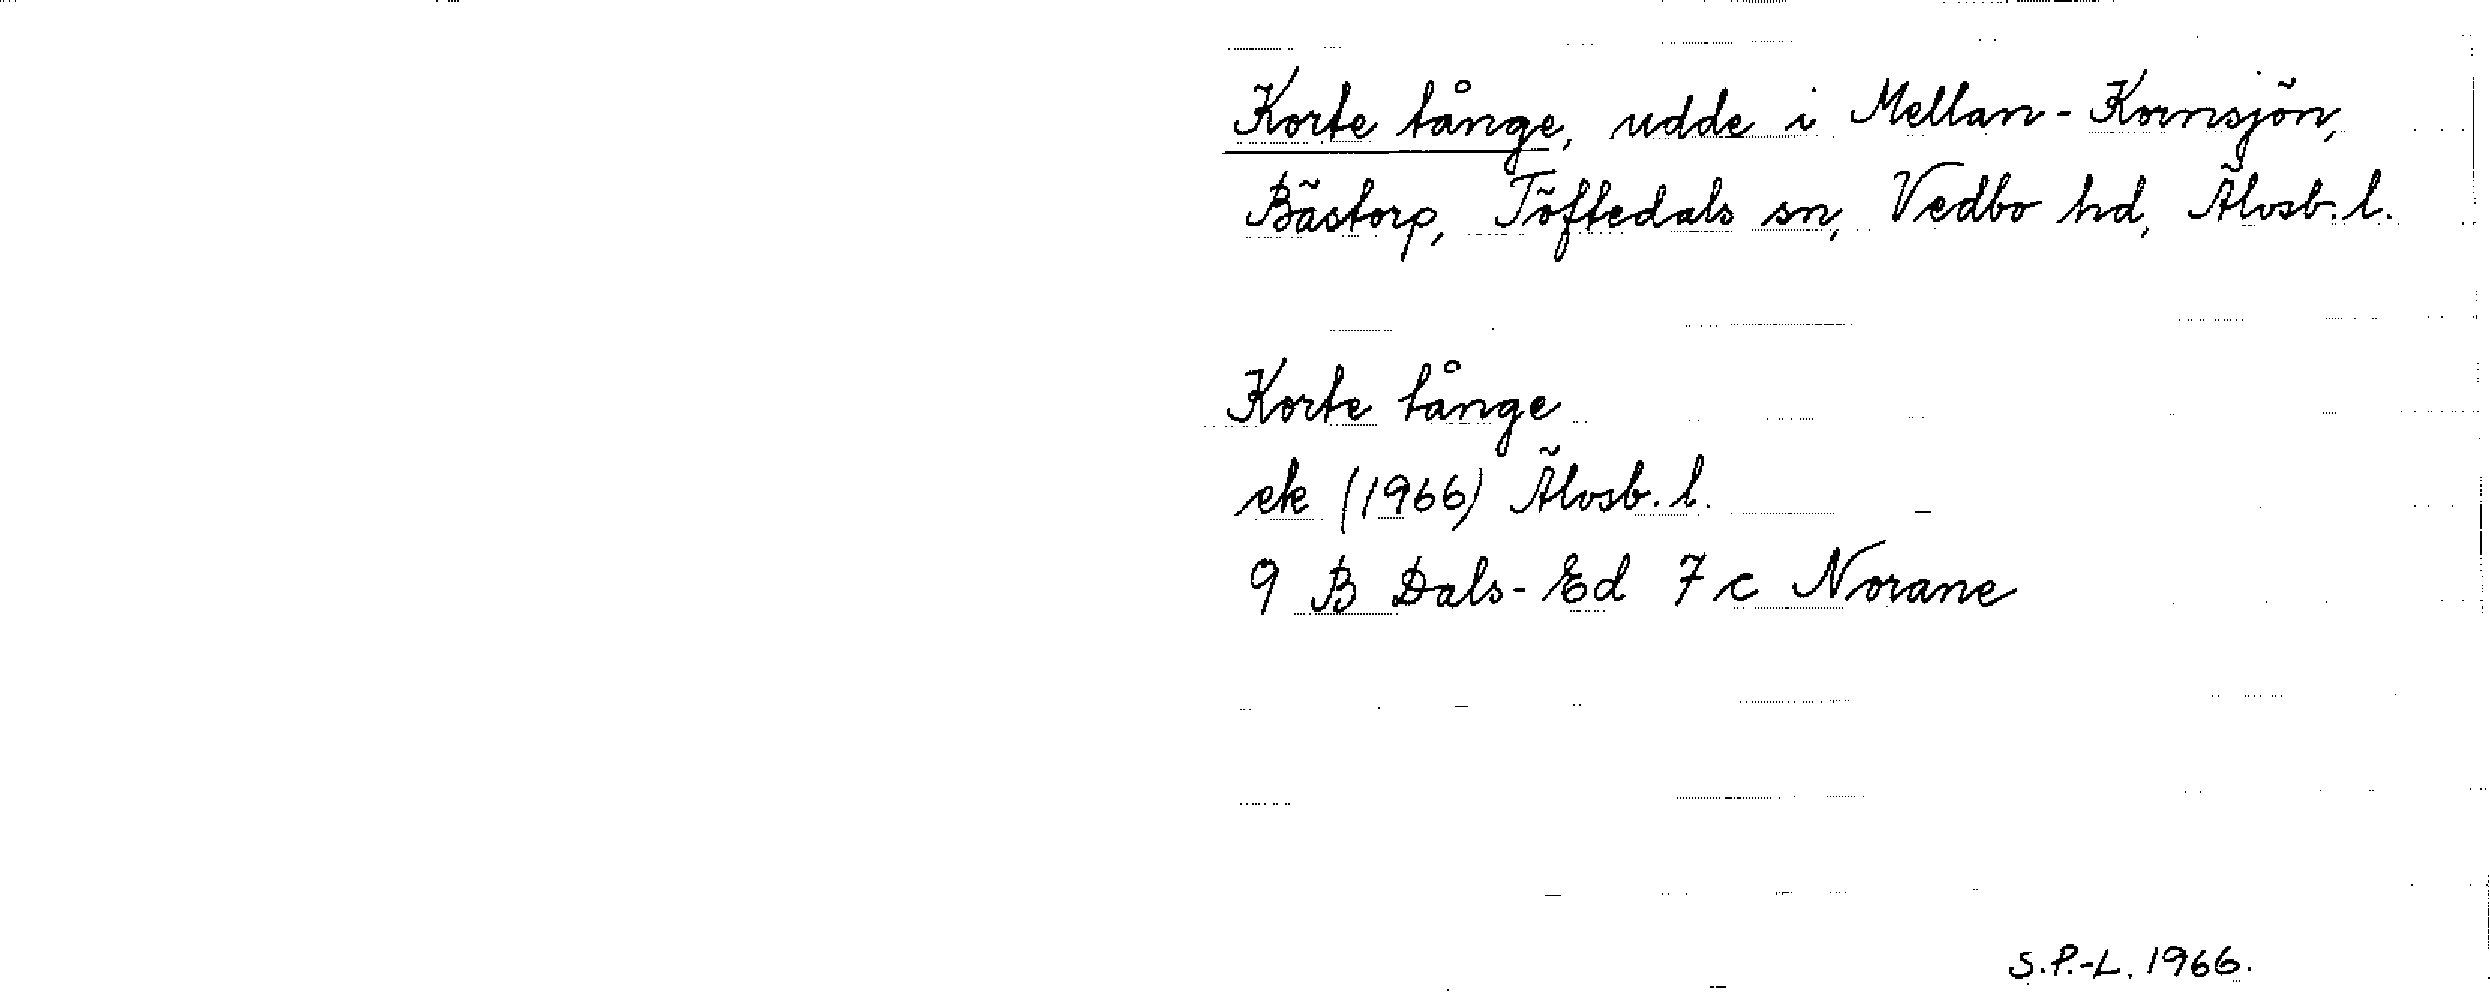 Korte tånge, udde i Mellan-Kornsjön,
Bästorp, Töftedals sn, Vedbo hd, Älvsb. l.
Korte tånge
ek (1966) Älvsb. l.
9 B Dals-Ed 7 c Norane
S.P.-L. 1966.